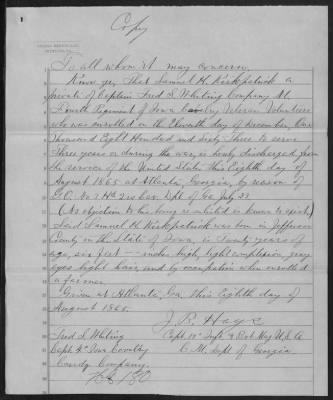 Copy
To all whom it may concern,
Know ye, That Samuel H. Kirkpatrick a
private of Captain Fred S. Whiting Company M.
Fourth Regiment of Iowa Cavalry Veteran Volunteers
who was enrolled on the Eleventh day of December, One
Thousand Eight Hundred and Sixty Three to serve
Three years or during the war, is hereby discharged from
the service of the United States this Eighth day of
August 1865 at Atlanta, Georgia, by reason of
G.O. No 7 Hd Qrs Dept of Ga July 23
(No objection to his being re-enlisted is known to exist)
Said Samuel H. Kirkpatrick was born in Jefferson
County in the State of Iowa, is Twenty years of
age, six feet -- inches high, light complexion, gray
eyes light hair, and by occupation when enrolled
a farmer.
Given at Atlanta Ga. this Eighth day of
August 1865.
J. B. Hays
Fred S. Whiting
Capt 19" Inft & U.S.A
Capt. 4" Iowa Cavalry
C.M. Dept of Georgia
Comdg Company.